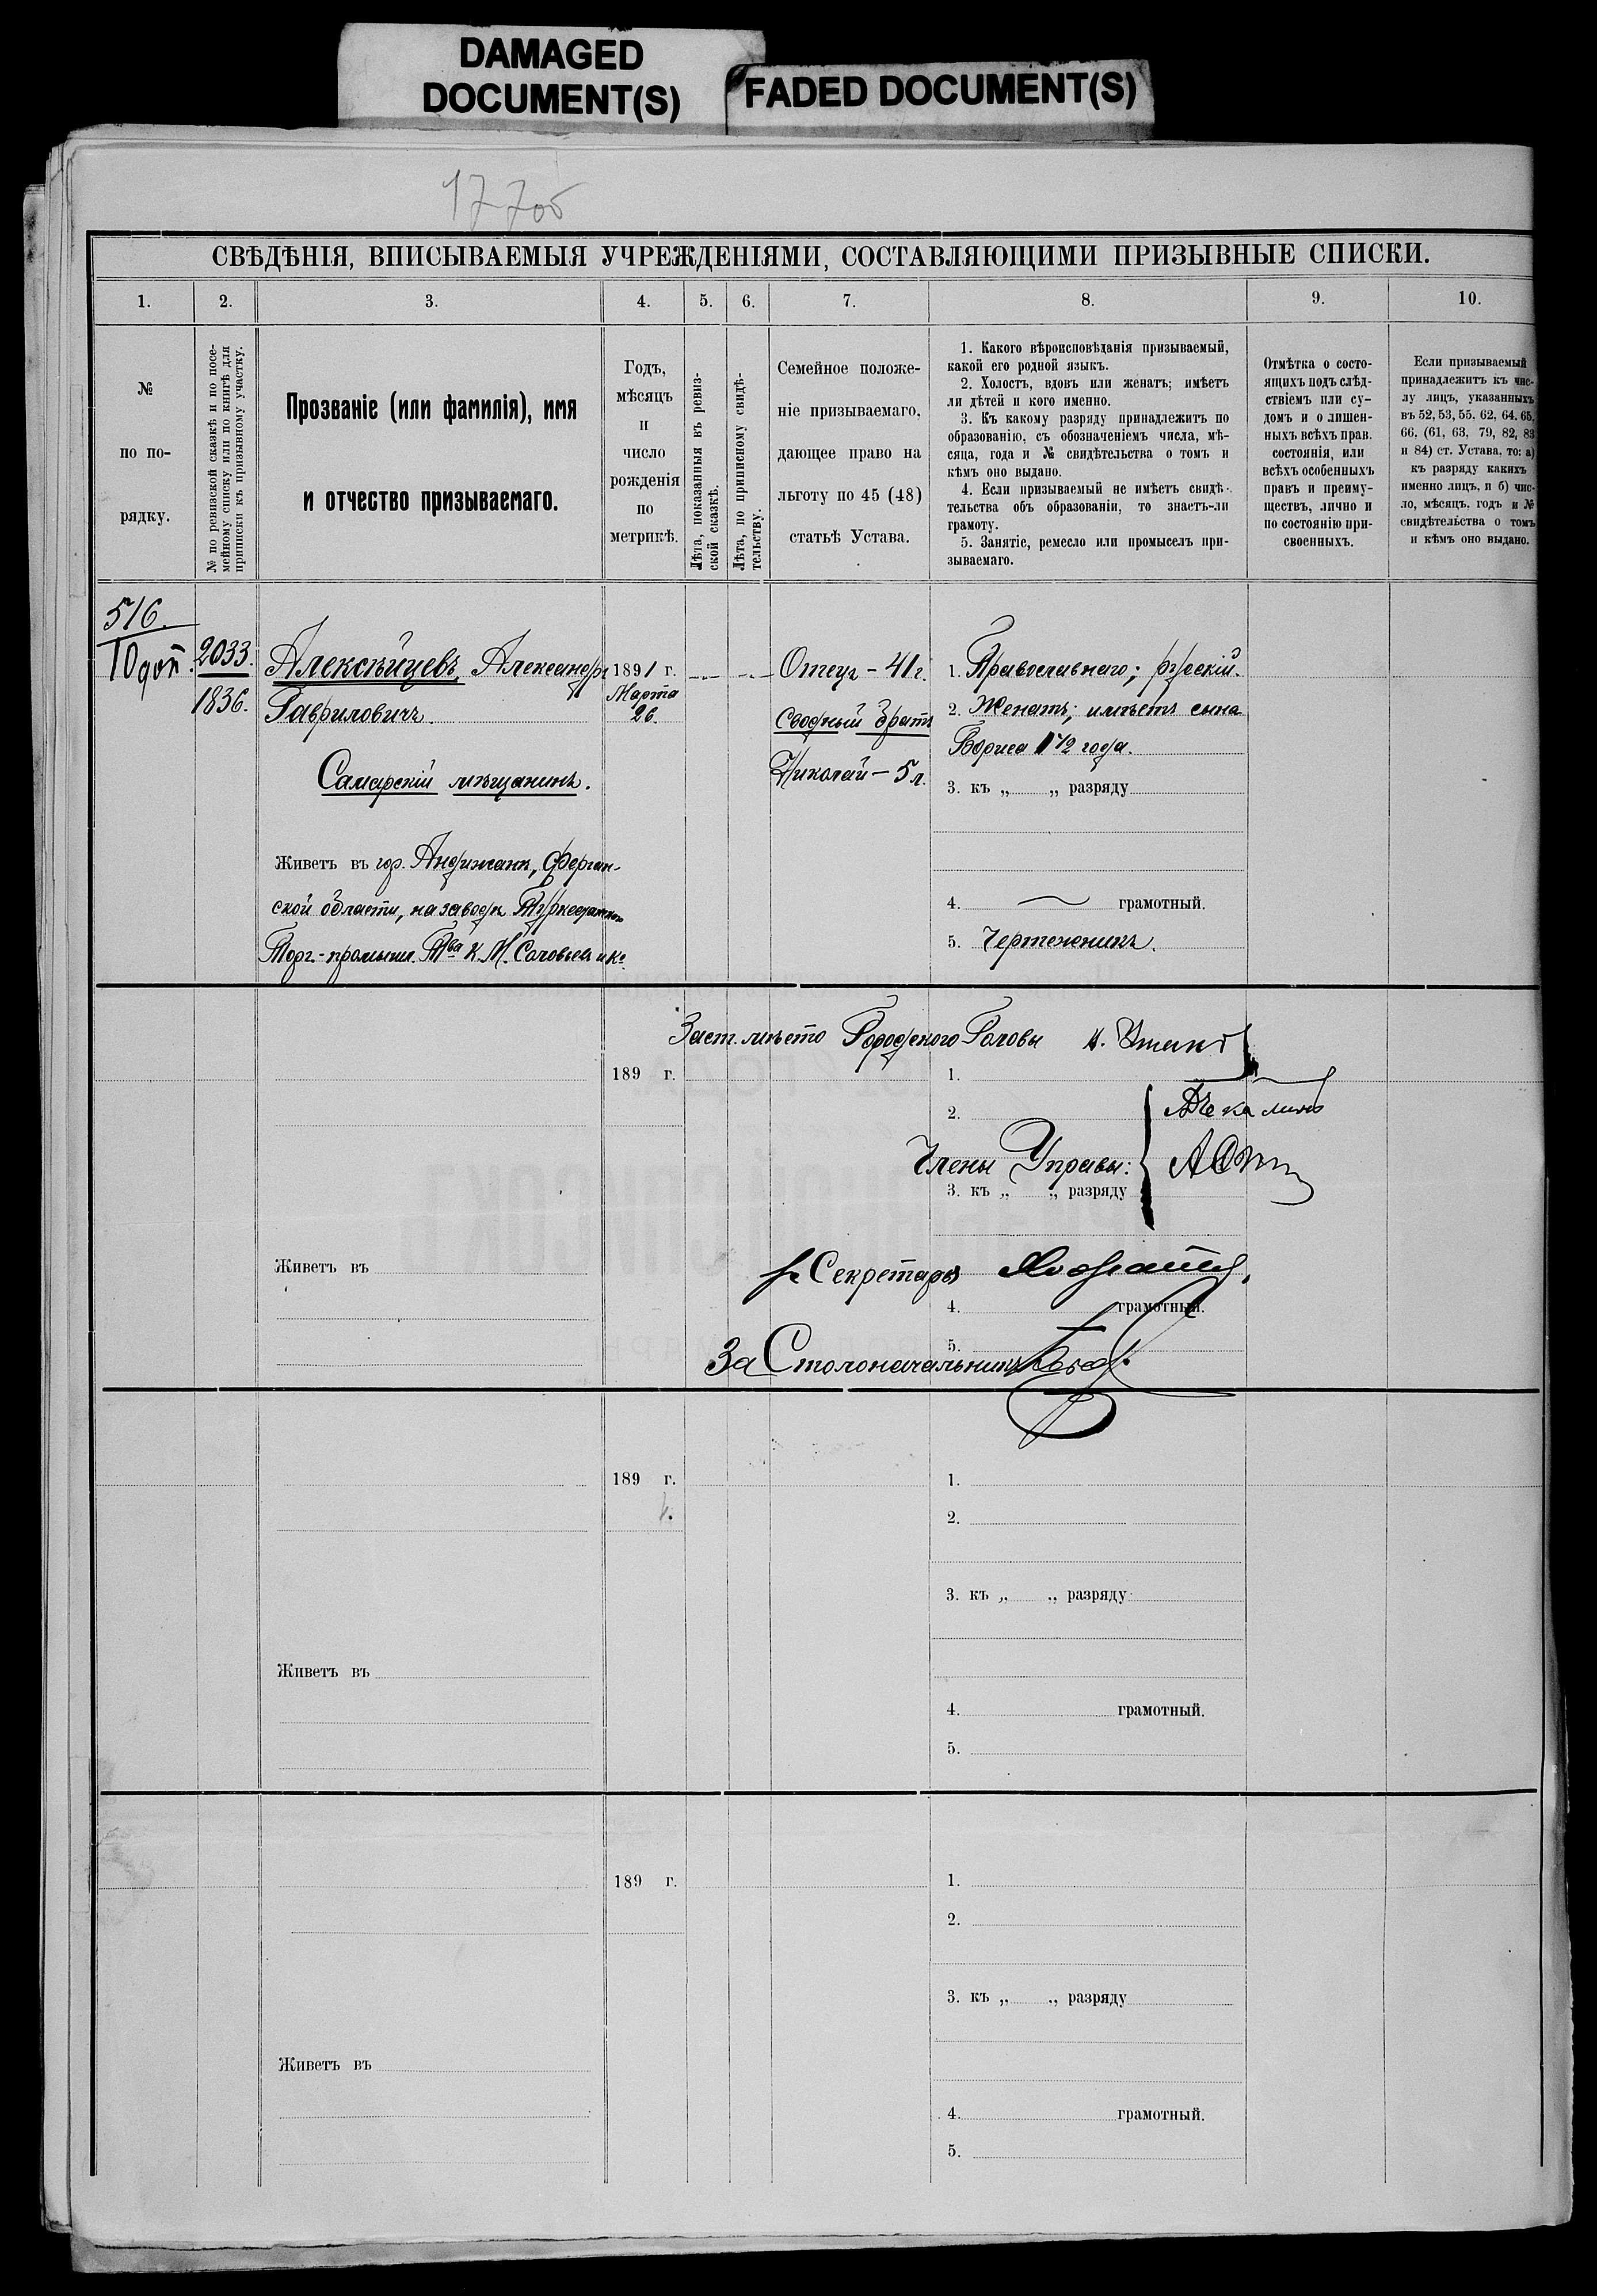 DAMAGED
DOCUMENT(S)
FADED DOCUMENT(S)
СВѢДѢНІЯ, ВПИСЫВАЕМЫЯ УЧРЕЖДЕНІЯМИ, СОСТАВЛЯЮЩИМИ ПРИЗЫВНЫЕ СПИСКИ.
1. 2. 3. 4. 5. 6. 7. 8. 9. 10.
№
по по-
рядку.
№ по ревизской сказкѣ и по посе-
мейному списку или по книгѣ для
приписки къ призывному участку.
Прозваніе (или фамилія), имя
и отчество призываемаго.
Годъ,
мѣсяцъ
и
число
рожденія
по
метрикѣ.
Лѣта, показанныя въ ревиз-
ской сказкѣ.
Лѣта, по приписному свидѣ-
тельству.
Семейное положе-
ніе призываемаго,
дающее право на
льготу по 45 (48)
статьѣ Устава.
1. Какого вѣроисповѣданія призываемый,
какой его родной языкъ.
2. Холостъ, вдовъ или женатъ; имѣетъ
ли дѣтей и кого именно.
3. Къ какому разряду принадлежитъ по
образованію, съ обозначеніемъ числа, мѣ-
сяца, года и № свидѣтельства о томъ и
кѣмъ оно выдано.
4. Если призываемый не имѣетъ свидѣ-
тельства объ образованіи, то знаетъ-ли
грамоту.
5. Занятіе, ремесло или промыселъ при-
зываемаго.
Отмѣтка о состо-
ящихъ подъ слѣд-
ствіемъ или су-
домъ и о лишен-
ныхъ всѣхъ прав.
состоянія, или
всѣхъ особенныхъ
правъ и преиму-
ществъ, лично и
по состоянію при-
своенныхъ.
Если призываемый
принадлежитъ къ чис-
лу лицъ, указанныхъ
въ 52, 53, 55, 62, 64, 65,
66, (61, 63, 79, 82, 83
и 84) ст. Устава, то: а)
къ разряду какихъ
именно лицъ, и б) чис-
ло, мѣсяцъ, годъ и №
свидѣтельства о томъ
и кѣмъ оно выдано.
516.
10 доп.
2033.
1836.
Алексѣйцевъ, Александръ
Гавриловичъ.
Самарскій мѣщанинъ.
Живетъ въ гор. Андижанѣ, Ферган-
ской области, на заводѣ
Торг.-промышл. Т-ва К. М. Соловьевъ и Ко
1891 г.
Марта
26.
Отецъ – 41 г.
Сводный братъ
Николай – 5 л.
1. Православнаго; русскій.
2. Женатъ; имѣетъ сына
Бориса 1½ года.
3. къ „ „ разряду
4. грамотный.
5. Чертежникъ.
Заст. мѣсто Городского Головы
189 г.
1.
2.
Члены Управы:
3. къ „ „ разряду
Живетъ въ
Секретаря
4. грамотный.
5.
За Столоначальника
189 г.
1.
2.
3. къ „ „ разряду
Живетъ въ
4. грамотный.
5.
189 г.
1.
2.
3. къ „ „ разряду
Живетъ въ
4. грамотный.
5.